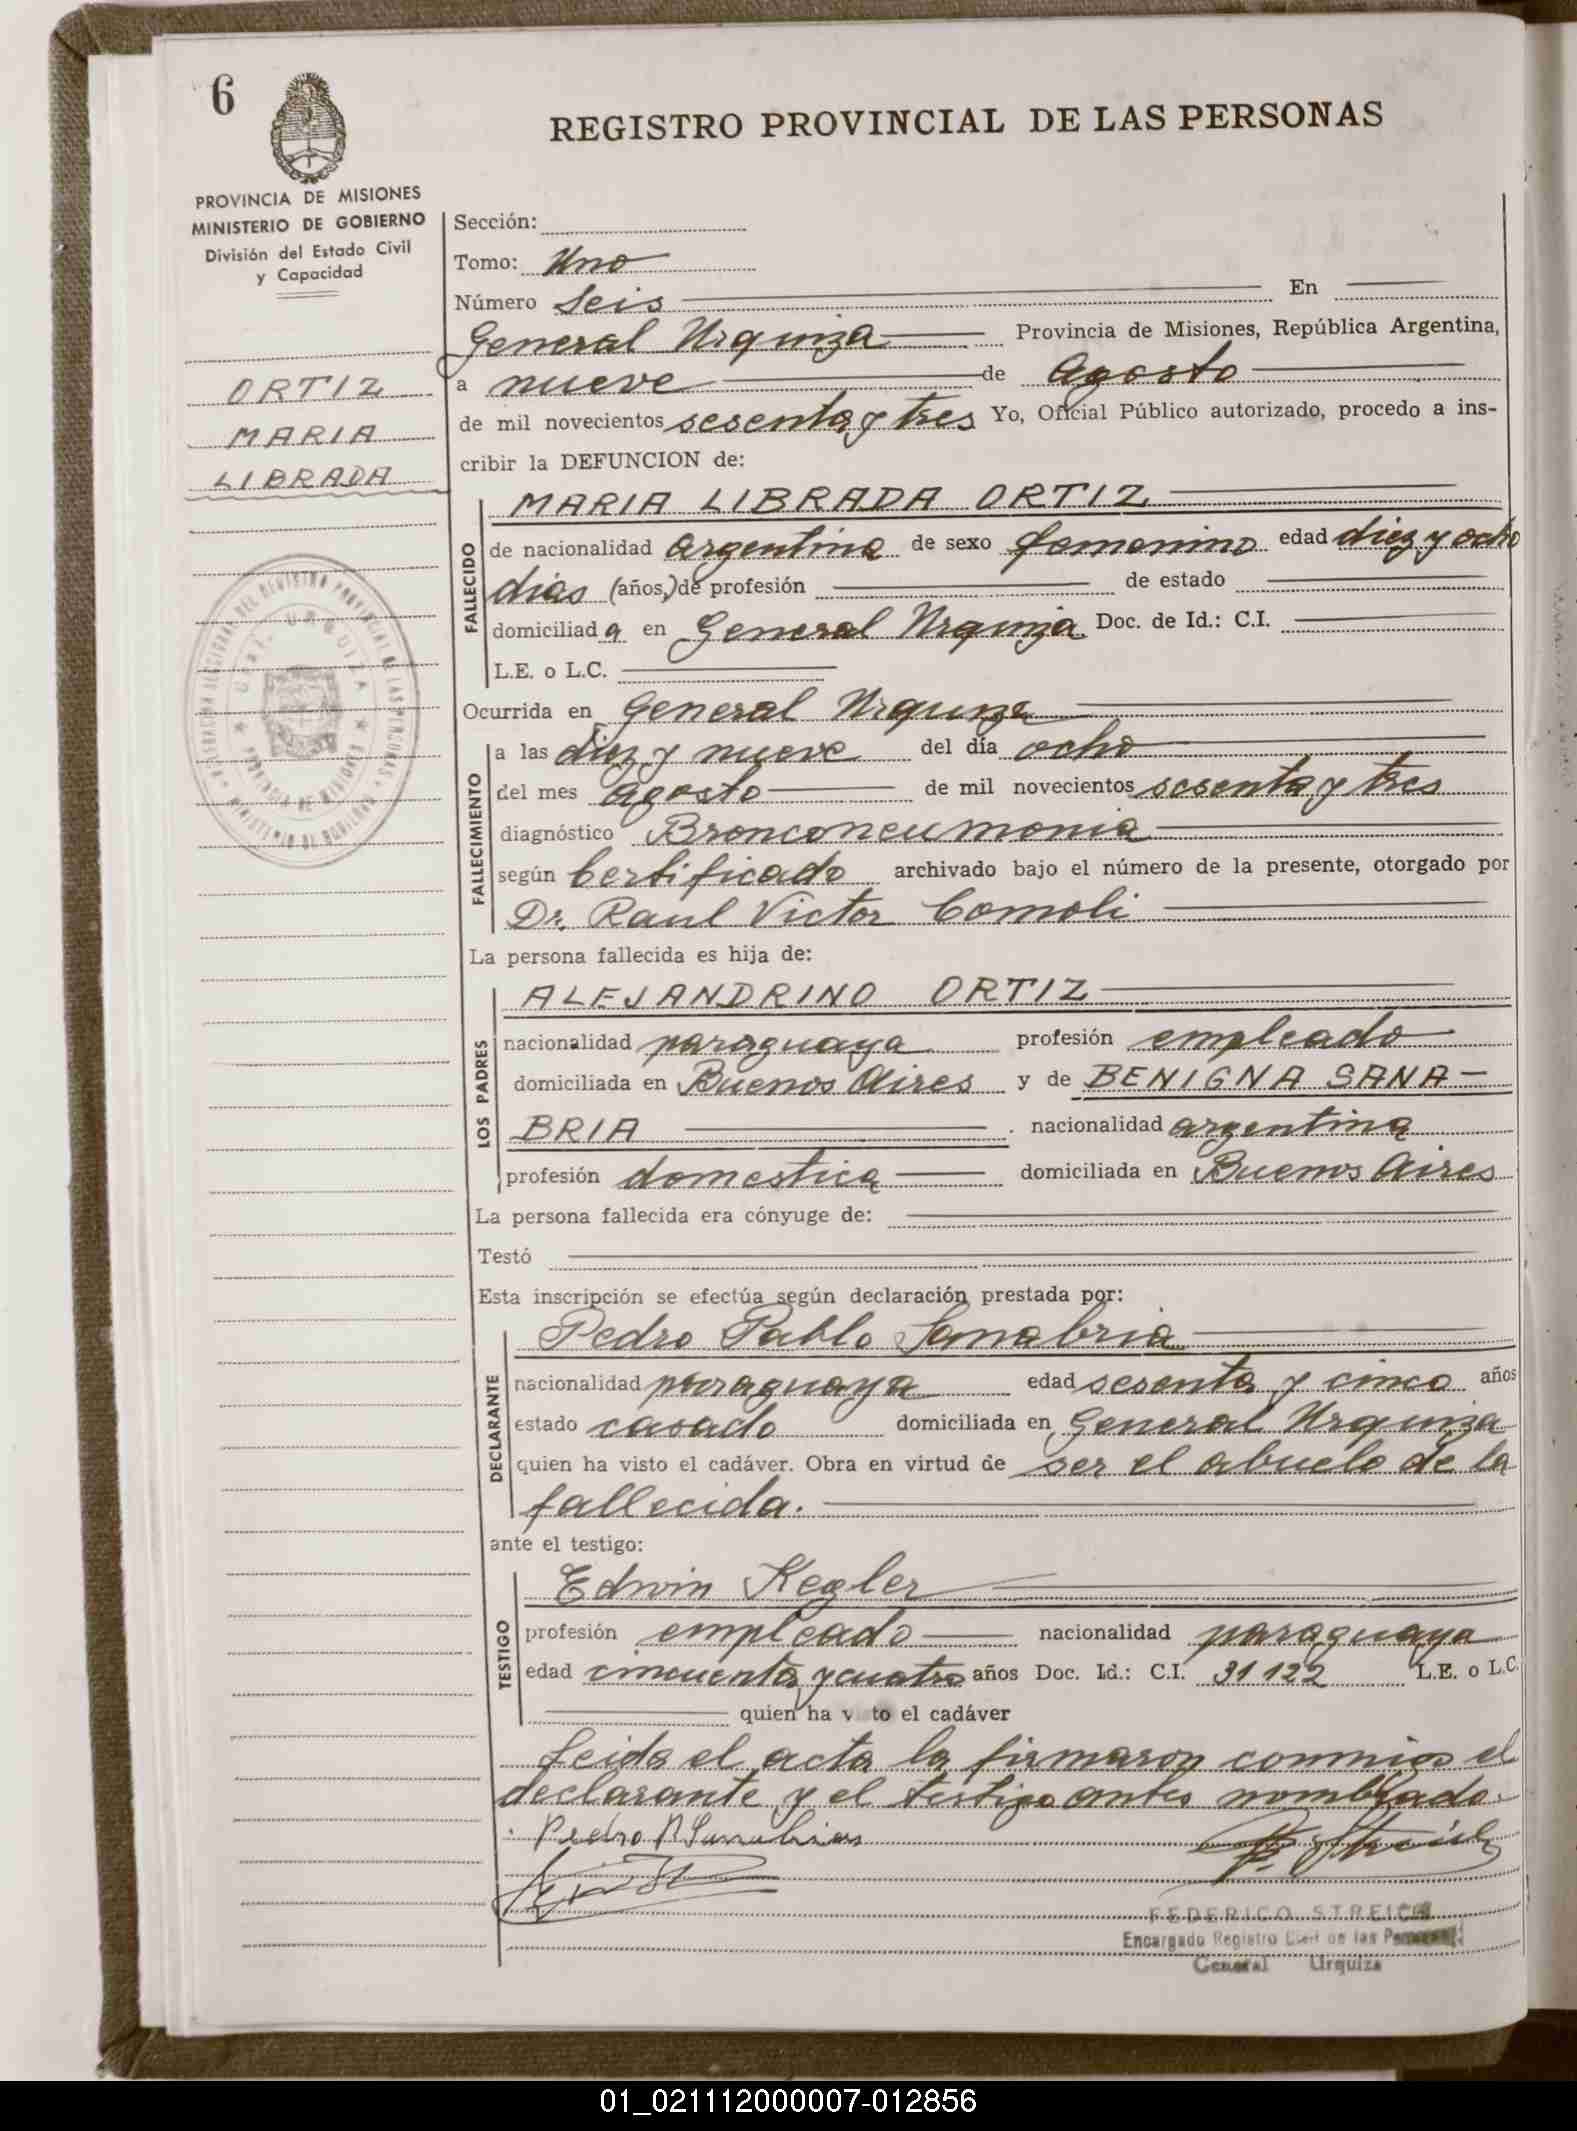 6
REGISTRO PROVINCIAL DE LAS PERSONAS
PROVINCIA DE MISIONES
MINISTERIO DE GOBIERNO
División del Estado Civil
y Capacidad
ORTIZ
MARIA
LIBRADA
GRAL. URQUIZA
Sección:
Tomo: Uno
Número Seis En
General Urquiza Provincia de Misiones, República Argentina,
a nueve de Agosto
de mil novecientos sesenta y tres Yo, Oficial Público autorizado, procedo a ins-
cribir la DEFUNCION de:
FALLECIDO
MARIA LIBRADA ORTIZ
de nacionalidad argentina de sexo femenino edad diez y ocho
dias (años,) de profesión de estado
domiciliad a en General Urquiza Doc. de Id.: C.I.
L.E. o L.C.
Ocurrida en General Urquiza
FALLECIMIENTO
a las diez y nueve del día ocho
del mes agosto de mil novecientos sesenta y tres
diagnóstico Bronconeumonia
según Certificado archivado bajo el número de la presente, otorgado por
Dr. Raul Victor Comoli
La persona fallecida es hija de:
LOS PADRES
ALEJANDRINO ORTIZ
nacionalidad paraguaya profesión empleado
domiciliada en Buenos Aires y de BENIGNA SANA-
BRIA nacionalidad argentina
profesión domestica domiciliada en Buenos Aires
La persona fallecida era cónyuge de:
Testó
Esta inscripción se efectúa según declaración prestada por:
DECLARANTE
Pedro Pablo Sanabria
nacionalidad paraguaya edad sesenta y cinco años
estado casado domiciliada en General Urquiza
quien ha visto el cadáver. Obra en virtud de ser el abuelo de la
fallecida.
ante el testigo:
TESTIGO
Edwin Kegler
profesión empleado nacionalidad paraguaya
edad cincuenta y cuatro años Doc. Id.: C.I. 31122 L.E. o L.C.
quien ha visto el cadáver
Leida el acta la firmaron conmigo el
declarante y el testigo antes nombrado.
Pedro P Sanabria
FEDERICO STREICH
Encargado Registro de las
General Urquiza
01_021112000007-012856